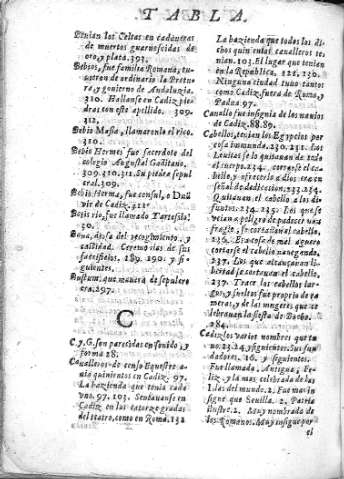 TABLA.
Tenian los Celtas en cadaneras
de muertos guarnescidas de
oro, y plata. 393.
Bebios, fue familia Romana, tu-
uieron de ordinario la Pretu-
ra, y gouierno de Andaluzia.
310. Hallanse en Cadiz pie-
dras con este apellido. 309.
312.
Bebio Massa, llamaronle el rico.
310.
Bebio Hermes fue sacerdote del
colegio Augustal Gaditano.
309.310.311. Su piedra sepul
cral. 309.
Bebio Herma, fue consul, o Duũ
vir de Cadiz. 312.
Betis rio, fue llamado Tartesso.
30.
Bona, diosa del recogimiento, y
castidad. Ceremonias de sus
sacrificios. 189. 190. y si-
guientes.
Bustum, que manera de sepulcro
era. 297.
C
C, y G, son parecidas en sonido, y
forma 28.
Caualleros de censo Equestre a-
uia quinientos en Cadiz. 97.
La hazienda que tenia cada
vno. 97. 103. Sentauanse en
Cadiz en las catorze gradas
del teatro, como en Roma. 132
La hazienda que todos los di-
chos quinientos caualleros te-
nian. 103. El lugar que tenian
en la Republica. 122. 130.
Ninguna ciudad tuuo tantos
como Cadiz, fuera de Roma, y
Padua 97.
Cauallo fue insignia de los nauios
de Cadiz. 88.89.
Cabellos, tenian los Egypcios por
cosa inmunda. 230. 231. Los
Leuitas se lo quitauan de todo
el cuerpo. 234. cortarse el ca-
bello, y ofrecerle a dios era se-
ñal de dedicacion. 233. 234.
Quitauan el cabello a los di-
funtos. 234. 235. Los que se
veian a peligro de padecer nau
fragio, se cortauan el cabello.
236. Era cosa de mal aguero
cortarse el cabello nauegando.
237. Los que alcançauan li-
bertad se cortauan el cabello.
237. Traer los cabellos lar-
gos, y sueltos fue proprio de ra
meras, y de las mugeres que ce-
lebrauan la fiesta de Bacho.
284.
Cadiz los varios nombres que tu
uo. 23.24. y siguientes. Sus fun
dadores. 16. y siguientes.
Fue llamada Antigua, Fe-
liz. y la mas celebrada de las
Islas del mundo. 2. Fue mas in
signe que Seuilla. 2. Patria
ilustre. 2. Muy nombrada de
los Romanos. Muy insigne por
el